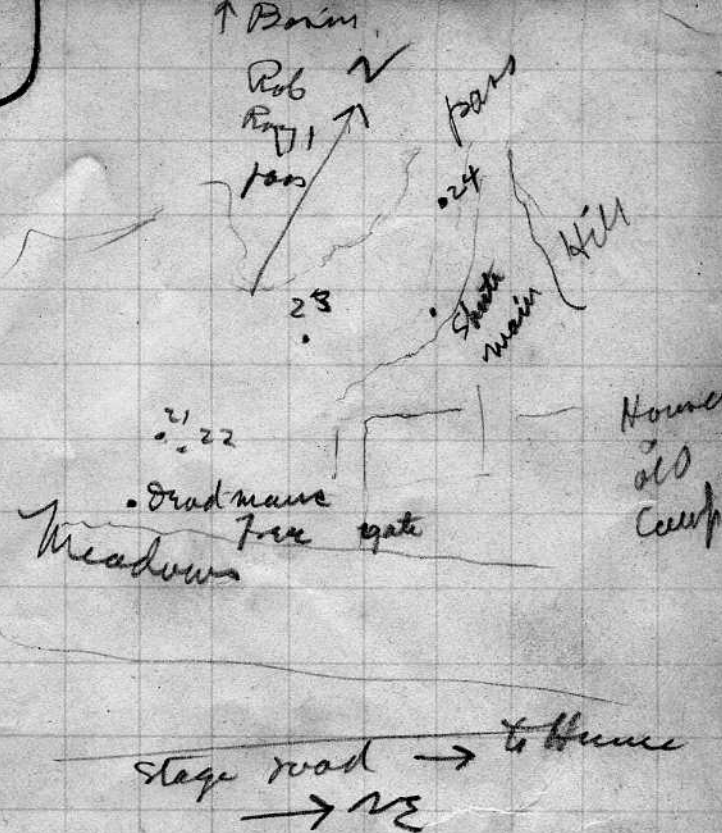 ↑ Basin
Rob
Roy
pass
N
pass
.24
Hill
23
Shute
main
21
22
House
old
Camp
Deadmans
Tree gate
Meadows
stage road → to Hume
→ NE